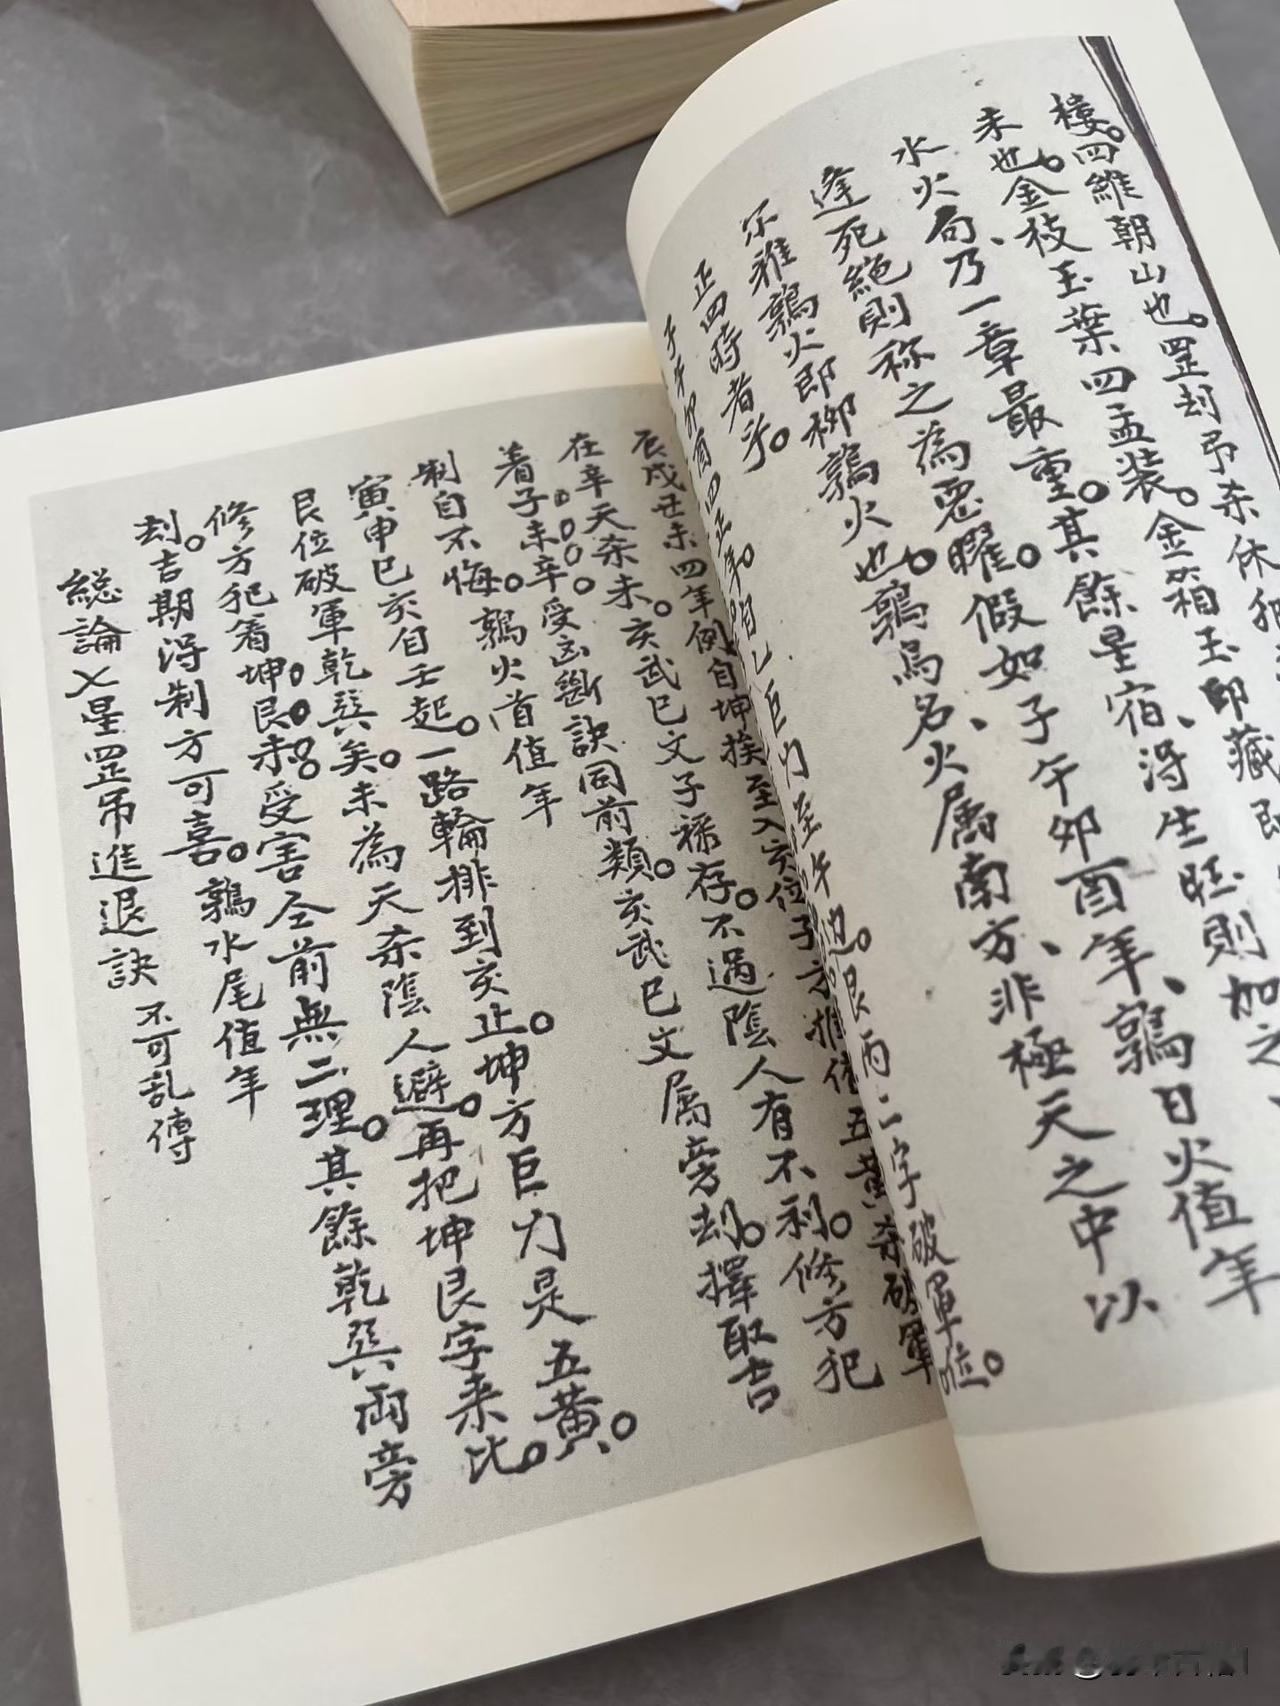 樓。四維朝山也。罡刦吊杀休犯
未也。金枝玉葉四孟装。金箱玉印藏
水火局、乃一章最重。其餘星宿、得生旺則加之、
逢死絶則称之為惡曜。假如子午卯酉年、鶉日火值年
尔雅鶉火即柳鶉火也。鶉鳥名、火属南方、非極天之中以
正四時者乎。
子午卯酉四正年。自乙巨门至午也。艮丙二字破軍位。
辰戌丑未四年例自坤挨至入亥位子推值五黄杀破軍
在辛天杀未。亥武巳文子禄存。不過陰人有不利。修方犯
着子未辛受凶斷訣同前類。亥武巳文属旁刦。擇取吉
制自不悔。鶉火首值年
寅申巳亥自壬起。一路輪排到亥止。坤方巨力是五黄。
艮位破軍乾巽矣。未為天杀陰人避。再把坤艮字来比。
修方犯着坤艮未。受害全前無二理。其餘乾巽両旁
刦。吉期得制方可喜。鶉水尾值年
総論七星罡吊進退訣 不可乱傳